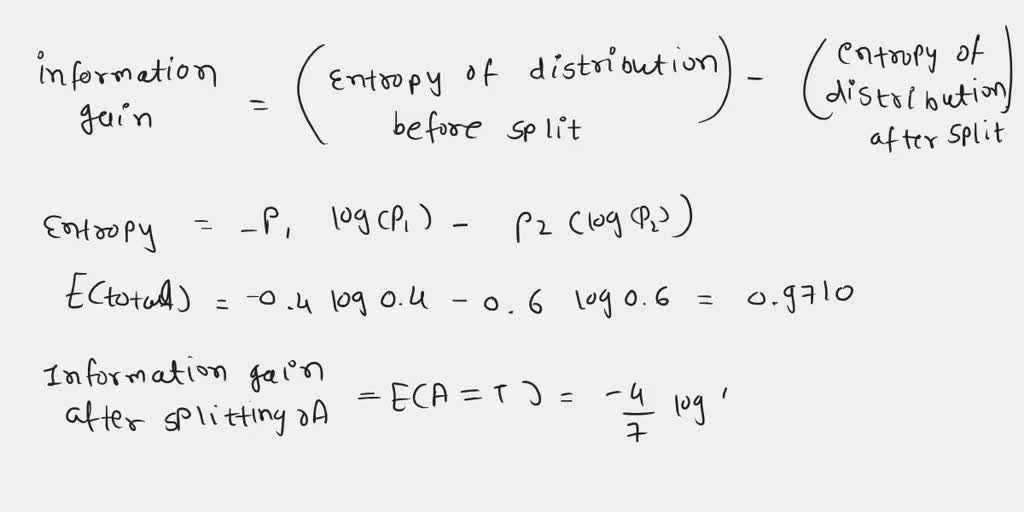 information gain = (Entropy of distribution before split) - (Entropy of distribution after split)
Entropy = -P1 log(P1) - P2 (log(P2))
E(total) = -0.4 log 0.4 - 0.6 log 0.6 = 0.9710
Information gain after splitting A = E(A = T) = -4/7 log